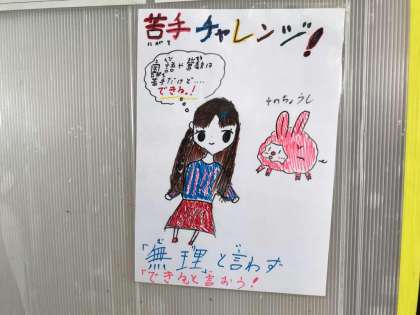 苦手チャレンジ!
にがて
国語や算数は
苦手だけど....
できる。!
そのちょうし
「無理」と言わず
「できる」と言おう!